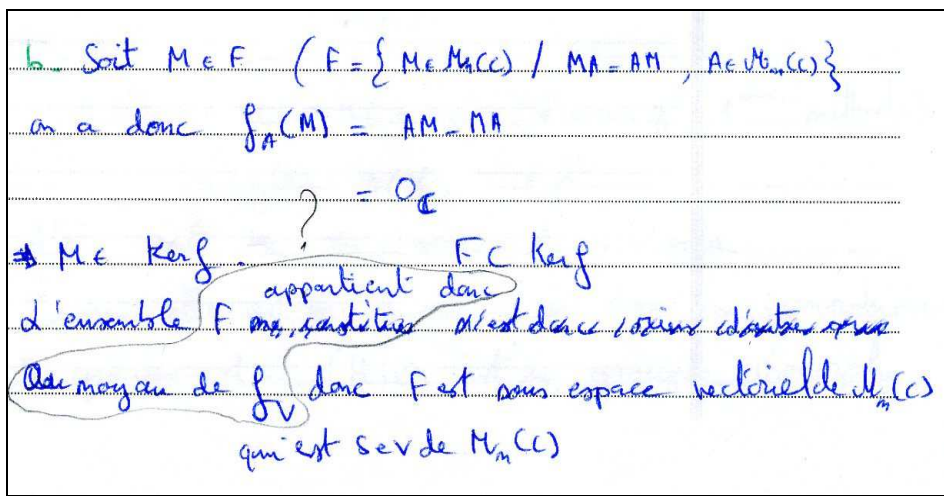 b- Soit M ∈ F ( F = { M ∈ Mn(C) / MA = AM , A ∈ Mn(C) }
on a donc fA(M) = AM - MA
= 0C
?
⇒ M ∈ Ker f . F ⊂ Ker f
appartient donc
L'ensemble F n'est donc
au noyau de f donc F est sous espace vectoriel de Mn(C)
qui est sev de Mn(C)